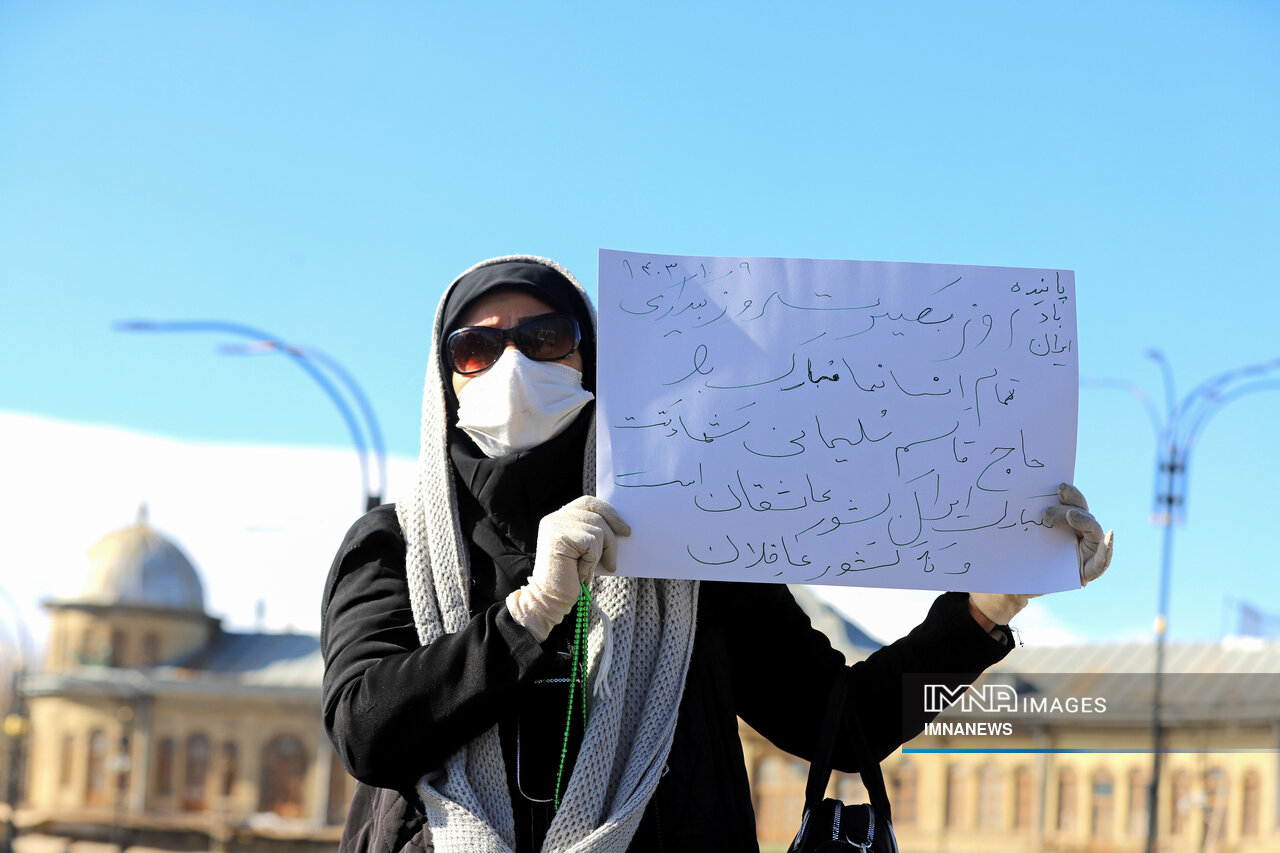 ۹ ر ۱۰ر ۱۴۰۳
پاینده
باد
ایران
روز بصیرت روز بیداری
تمام انسانها مبارک باد
حاج قاسم سلیمانی شهادتت
مبارک ایران کشور عاشقان است
و نه کشور عاقلان
IMNA IMAGES
IMNANEWS